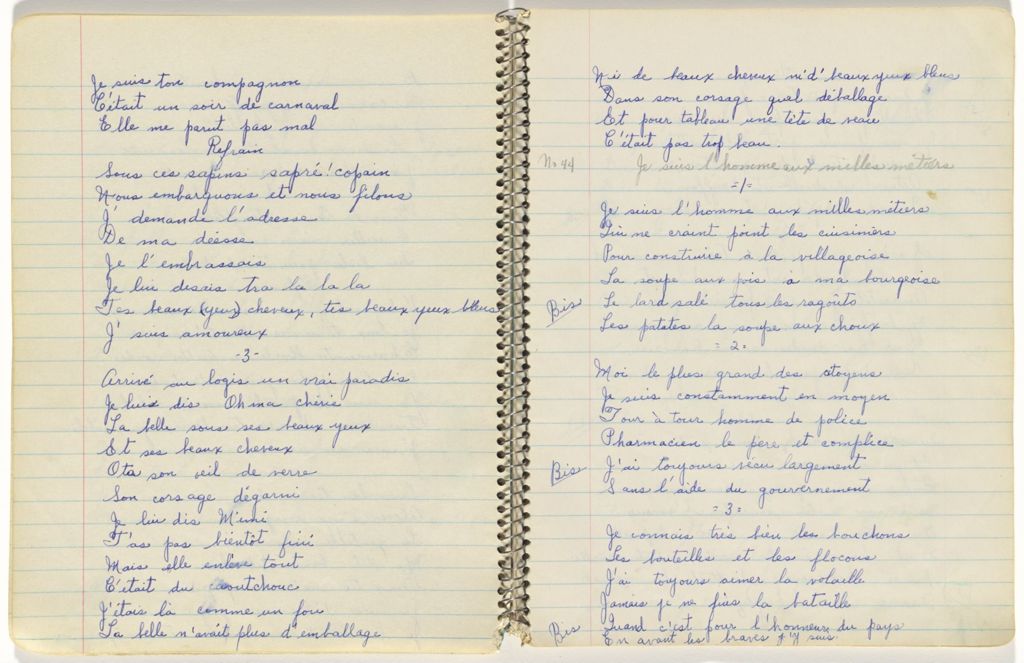 Je suis ton compagnon
C'était un soir de carnaval
Elle me parut pas mal
Refrain
Sous ces sapins sapré! copain
Nous embarquons et nous filons
J' demande l'adresse
De ma déesse
Je l'embrassais
Je lui disais tra la la la
Tes beaux (yeux) cheveux, tes beaux yeux bleus
J' suis amoureux
-3-
Arrivé au logis un vrai paradis
Je luix dis Oh ma chérie
La belle sous ses beaux yeux
Et ses beaux cheveux
Ota son oeil de verre
Son corsage dégarni
Je lui dis M'imi
T'as pas bientôt fini
Mais elle enlève tout
C'était du caoutchouc
J'étais là comme un fou
La belle n'avait plus d'emballage
Ni de beaux cheveux ni d' beaux yeux bleus
Dans son corsage quel déballage
Et pour tableau une tête de veau
C'était pas trop beau.
No 44 Je suis l'homme aux milles métiers
=1=
Je suis l'homme aux milles métiers
Qui ne craint point les cuisiniers
Pour construire à la villageoise
La soupe aux pois à ma bourgeoise
Bis Le lard salé tous les ragoûts
Les patates la soupe aux choux
=2=
Moi le plus grand des citoyens
Je suis constamment en moyen
Tour à tour homme de police
Pharmacien le père et complice
Bis J'ai toujours vécu largement
Sans l'aide du gouvernement
=3=
Je connais très bien les bouchons
Les bouteilles et les flocons
J'ai toujours aimer la volaille
Jamais je ne fuis la bataille
Bis Quand c'est pour l'honneur du pays
En avant les braves j'y suis